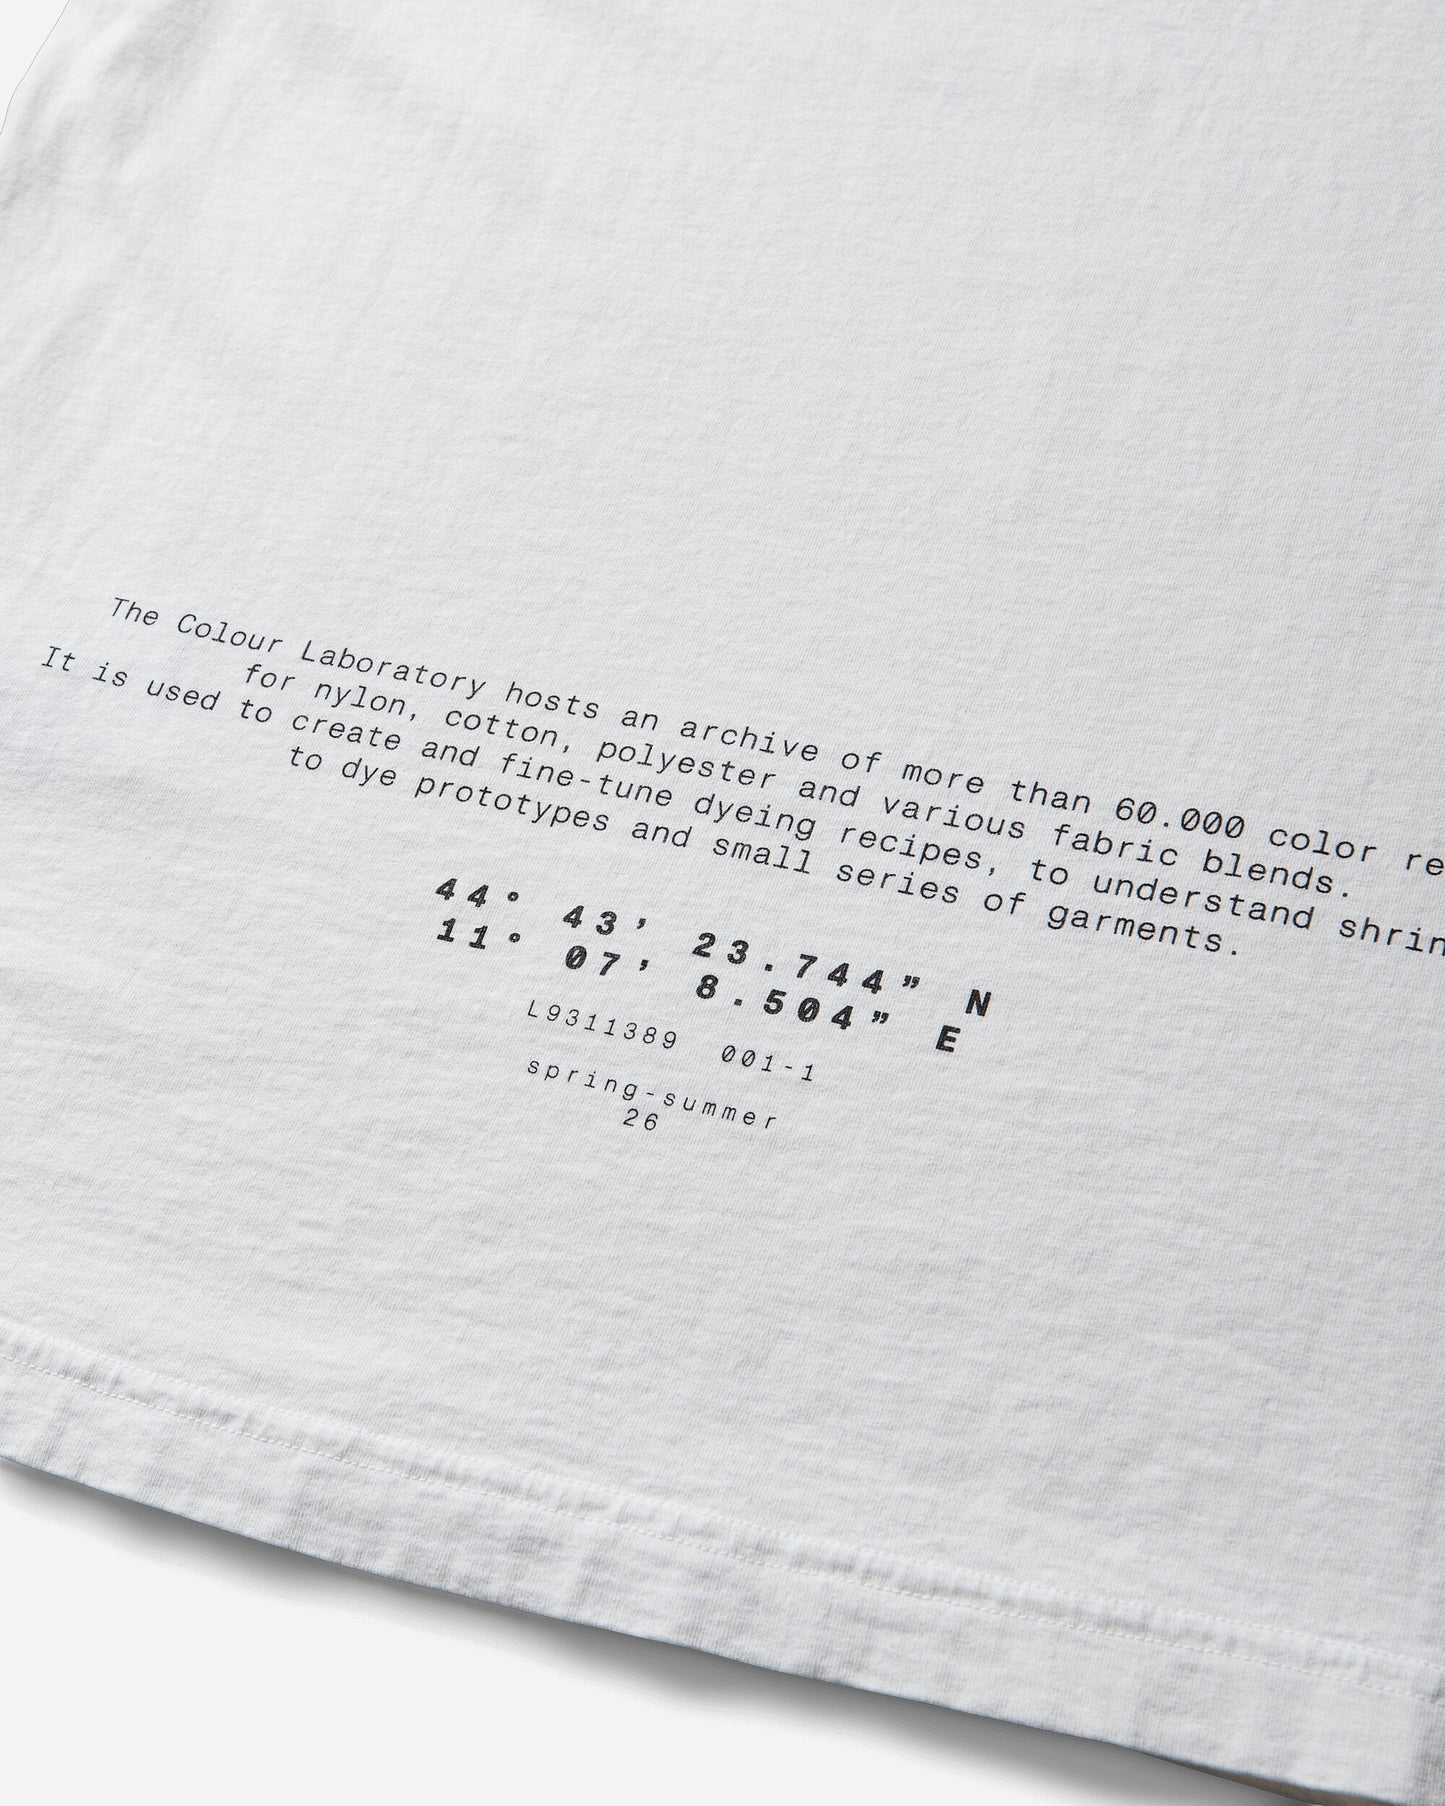 The Colour Laboratory hosts an archive of more than 60.000 color re
for nylon, cotton, polyester and various fabric blends.
It is used to create and fine-tune dyeing recipes, to understand shrin
to dye prototypes and small series of garments.
44° 43’ 23.744” N
11° 07’ 8.504” E
L9311389 001-1
spring-summer
26